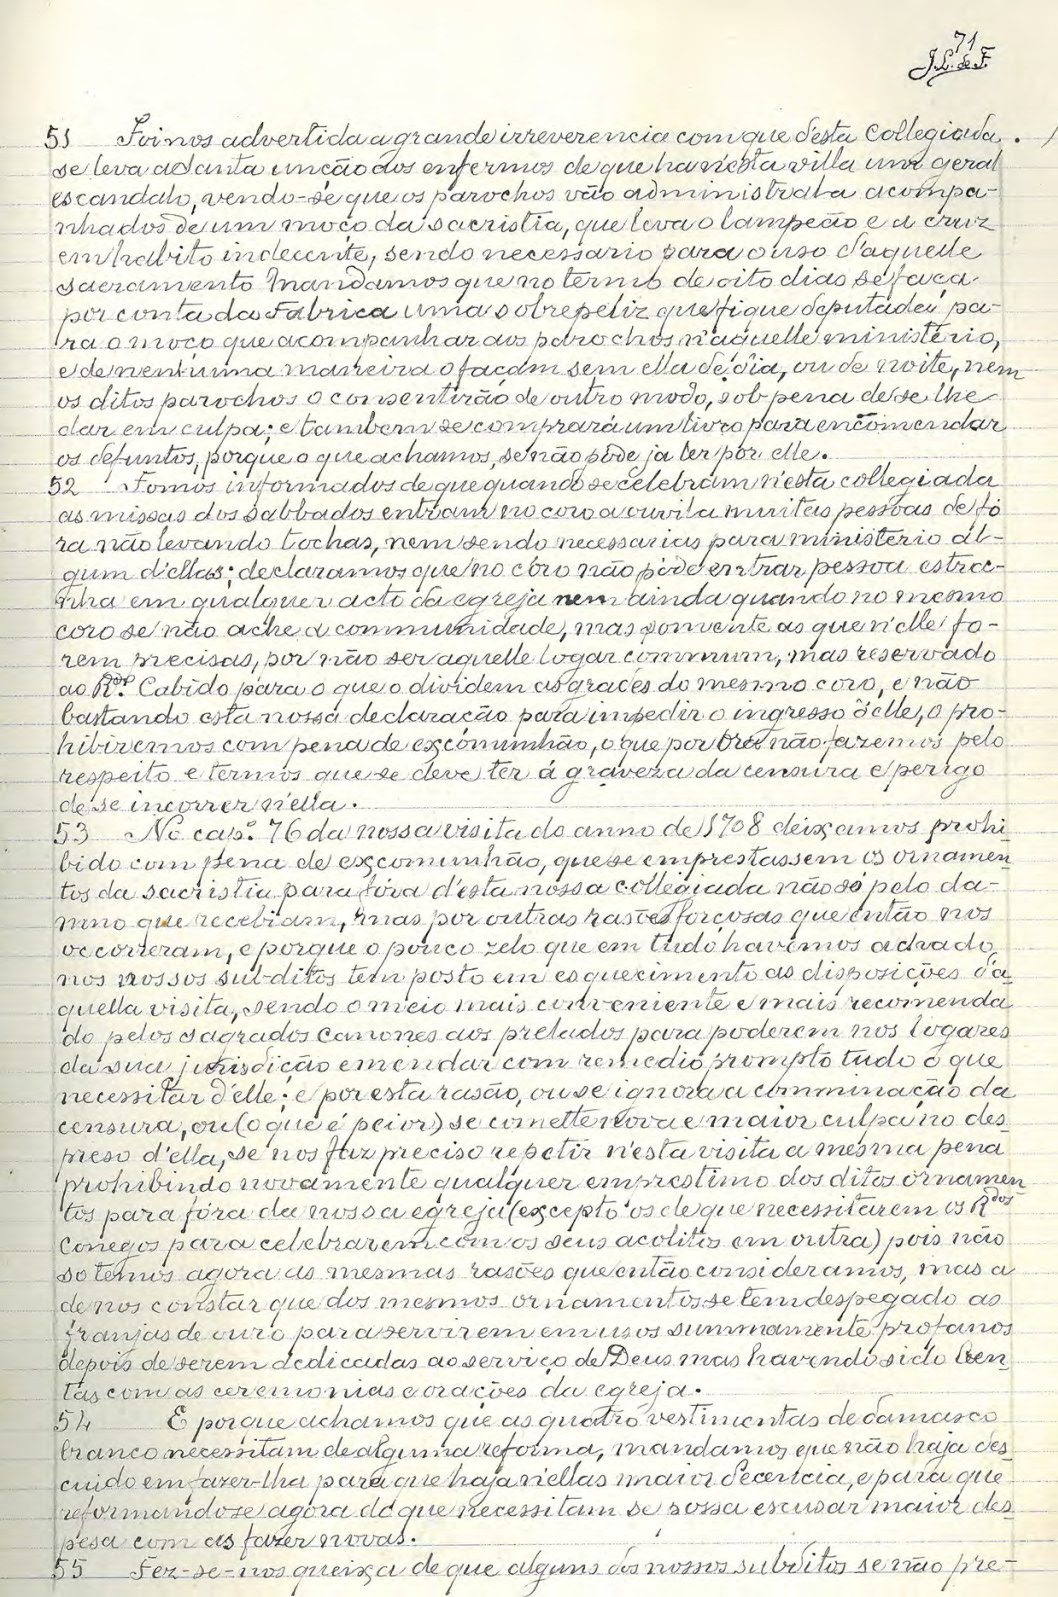 71
J. L. de F.
51 Foi-nos advertida a grande irreverencia com que d'esta Collegiada
se leva a Santa uncção aos enfermos de que ha n'esta villa um geral
escandalo, vendo-se que os parochos vão administral-a acompa-
nhados de um moço da sacristia, que leva o lampeão e a cruz
em habito indecente, sendo necessario para o uso d'aquelle
sacramento Mandamos que no termo de oito dias se faça
por conta da Fabrica uma sobrepeliz que fique deputada pa-
ra o moço que acompanhar aos parochos n'aquelle ministerio,
e de nenhuma maneira o façam sem ella de dia, ou de noite, nem
os ditos parochos o consentirão de outro modo, sob pena de se lhe
dar em culpa; e tambem se comprará um livro para encomendar
os defuntos, porque o que achamos, se não póde já ler por elle.
52 Fomos informados de que quando se celebram n'esta collegiada
as missas dos Sabbados entram no coro a ouvil-a muitas pessoas de fó
ra não levando tochas, nem sendo necessarias para ministerio al-
gum d'ellas; declaramos que no côro não póde entrar pessoa estra-
nha em qualquer acto da egreja nem ainda quando no mesmo
coro se não ache a communidade, mas somente as que n'elle fo-
rem precisas, por não ser aquelle logar commum, mas reservado
ao Rdo. Cabido para o que o dividem as grades do mesmo coro, e não
bastando esta nossa declaração para impedir o ingresso d'elle, o pro-
hibiremos com pena de excomunhão, o que por ora não fazemos pelo
respeito e termos que se deve ter á graveza da censura e perigo
de se incorrer n'ella.
53 No cap.º 76 da nossa visita do anno de 1708 deixamos prohi
bido com pena de excomunhão, que se emprestassem os ornamen
tos da sacristia para fóra d'esta nossa collegiada não só pelo da-
mno que recebiam, mas por outras rasões forçosas que então nos
occorreram, e porque o pouco zelo que em tudo havemos achado
nos nossos subditos tem posto em esquecimento as disposições d'a
quella visita, sendo o meio mais conveniente e mais recomenda
do pelos sagrados canones aos prelados para poderem nos logares
da sua jurisdição emendar com remedio prompto tudo o que
necessitar d'elle; e por esta rasão, ou se ignora a comminação da
censura, ou (o que é peior) se comette nova e maior culpa no des
preso d'ella, se nos faz preciso repetir n'esta visita a mesma pena
prohibindo novamente qualquer emprestimo dos ditos ornamen
tos para fóra da nossa egreja (excepto os de que necessitarem os Rdos
Conegos para celebrarem com os seus acolitos em outra) pois não
só temos agora as mesmas rasões que então consideramos, mas a
de nos constar que dos mesmos ornamentos se tem despegado as
franjas de ouro para servirem em usos summamente profanos
depois de serem dedicadas ao serviço de Deus mas havendo sido ben
tas com as ceremonias e orações da egreja.
54 E porque achamos que as quatro vestimentas de damasco
branco necessitam de alguma reforma, mandamos que não haja des
cuido em fazer-lha para que haja n'ellas maior decencia, e para que
reformando-se agora do que necessitam se possa escusar maior des
pesa com as fazer novas.
55 Fez-se-nos queixa de que alguns dos nossos subditos se não pre-